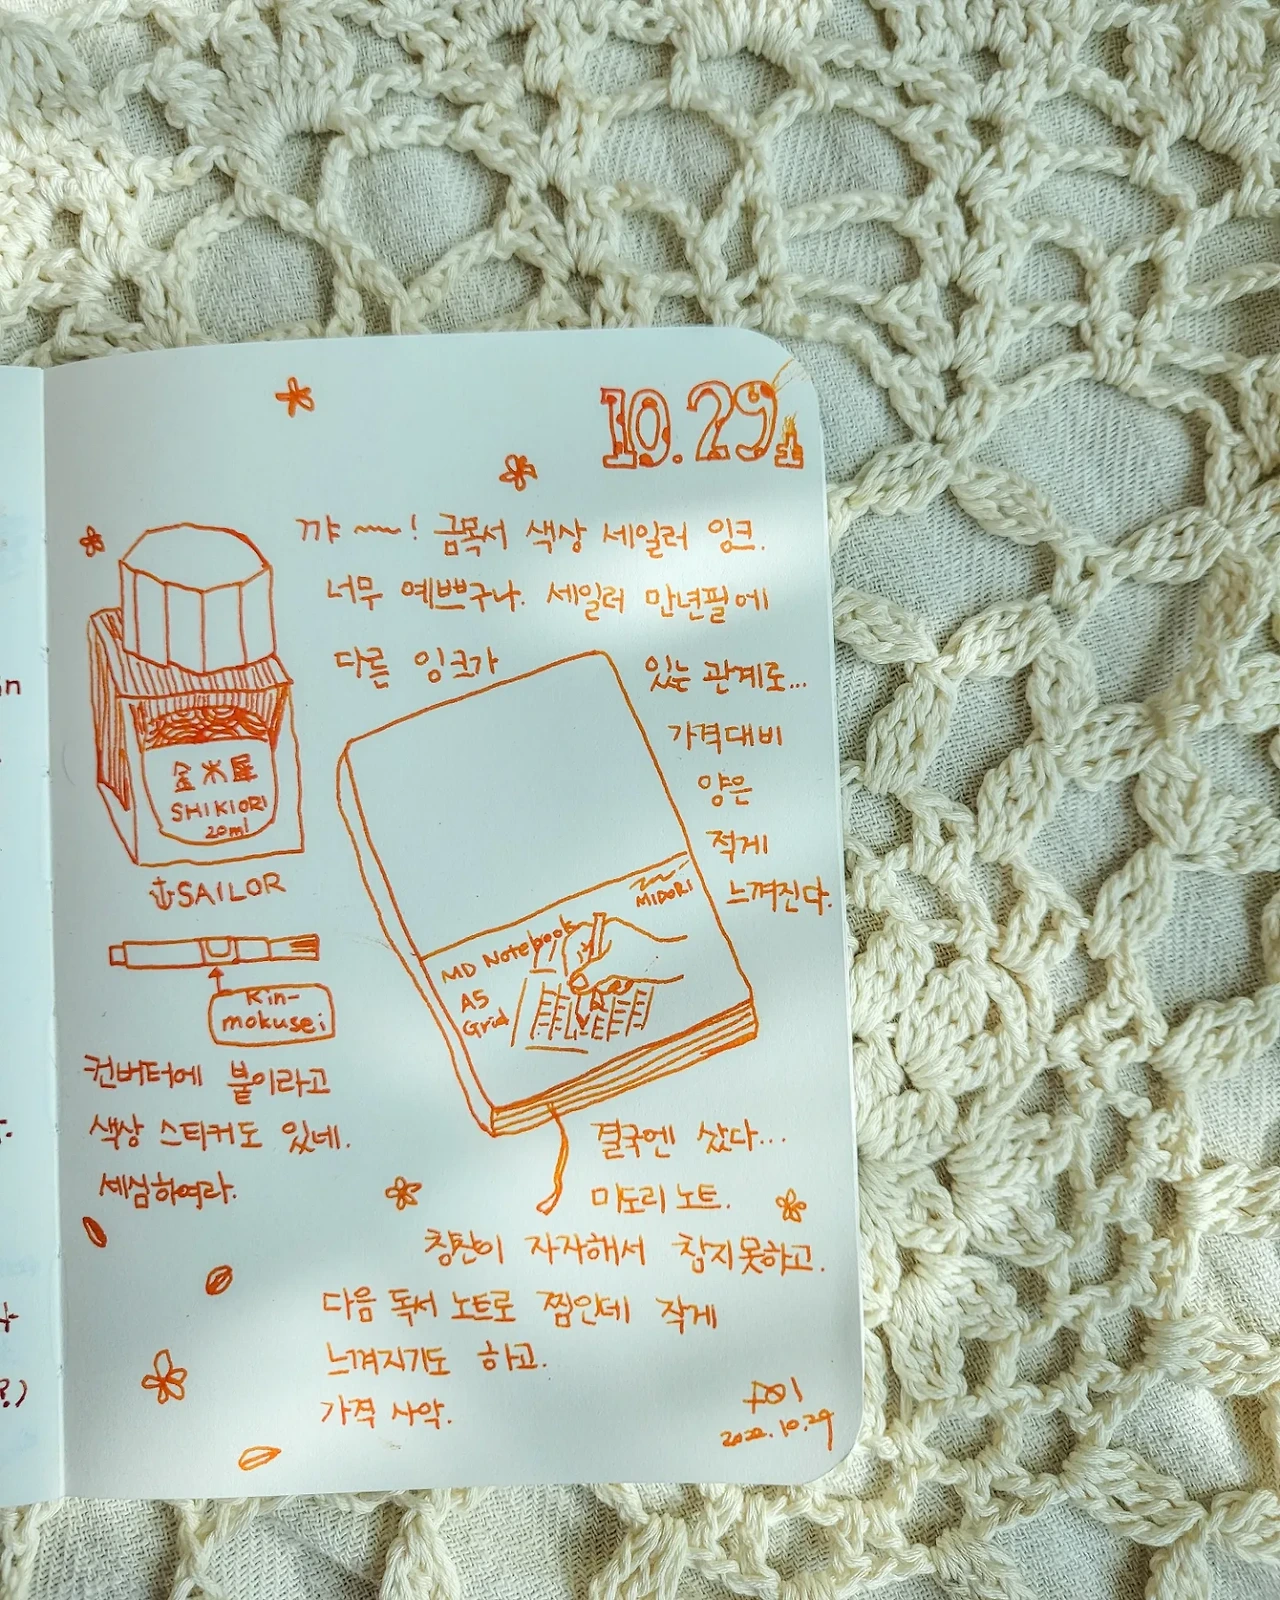 10.29
꺄~! 금목서 색상 세일러 잉크.
너무 예쁘구나. 세일러 만년필에
다른 잉크가 있는 관계로...
가격대비
양은
적게
느껴진다.
金木犀
SHIKIORI
20ml
SAILOR
Kin-
mokusei
컨버터에 붙이라고
색상 스티커도 있네.
세심하여라.
MIDORI
MD Notebook
A5
Grid
결국엔 샀다...
미도리 노트.
칭찬이 자자해서 참지못하고.
다음 독서 노트로 찜인데 작게
느껴지기도 하고.
가격 사악.
2022.10.29